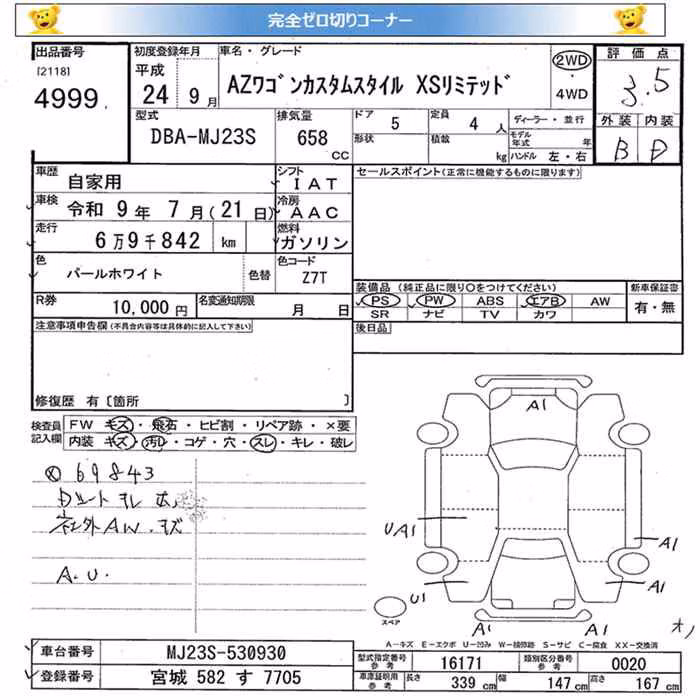 完全ゼロ切りコーナー
出品番号 初度登録年月 車名・グレード 評価点
[2118] 平成 2WD
4999 24年 9月 AZワゴンカスタムスタイル XSリミテッド ・4WD 3.5
型式 排気量 ドア 5 定員 4人 ディーラー・並行 外装 内装
DBA-MJ23S 658 CC 形状 積載 kg モデル年式 年 ハンドル 左・右 B D
車歴 自家用 シフト IAT セールスポイント(正常に機能するものに限ります)
車検 令和 9年 7月(21日) 冷房 AAC
走行 6万9千842 km 燃料 ガソリン
色 パールホワイト 色替 色コード Z7T
装備品(純正品に限り○をつけてください) 新車保証書
PS PW ABS エアB AW 有・無
SR ナビ TV カワ
R券 10,000円 名変通知期限 月 日
注意事項申告欄(不具合内容等は具体的に記入して下さい) 後日品
修復歴 有〔箇所 〕
検査員記入欄 FW キズ・飛石・ヒビ割・リペア跡・×要
内装 キズ・汚レ・コゲ・穴・スレ・キレ・破レ
69843
社外AW.キズ
A.U.
A1
UA1
A1
U1
A1
A1
A1
スペア
A-キズ E-エクボ U-凹み W-補修跡 S-サビ C-腐食 XX-交換済
車台番号 MJ23S-530930
型式指定番号 参考 16171 類別区分番号 参考 0020
登録番号 宮城 582 す 7705
車庫証明用 参考 長さ 339 cm 幅 147 cm 高さ 167 cm